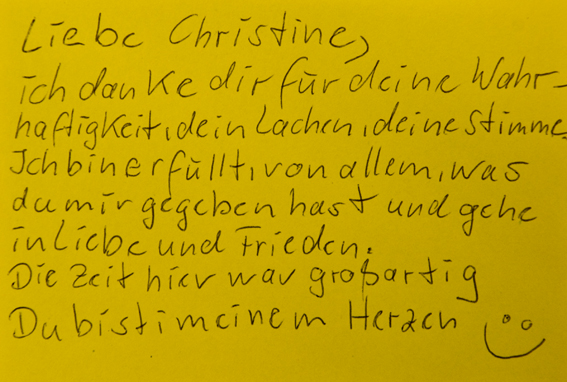 Liebe Christine,
ich danke dir für deine Wahr-
haftigkeit, dein Lachen, deine Stimme.
Ich bin erfüllt, von allem, was
du mir gegeben hast und gehe
in Liebe und Frieden.
Die Zeit hier war großartig
Du bist in meinem Herzen